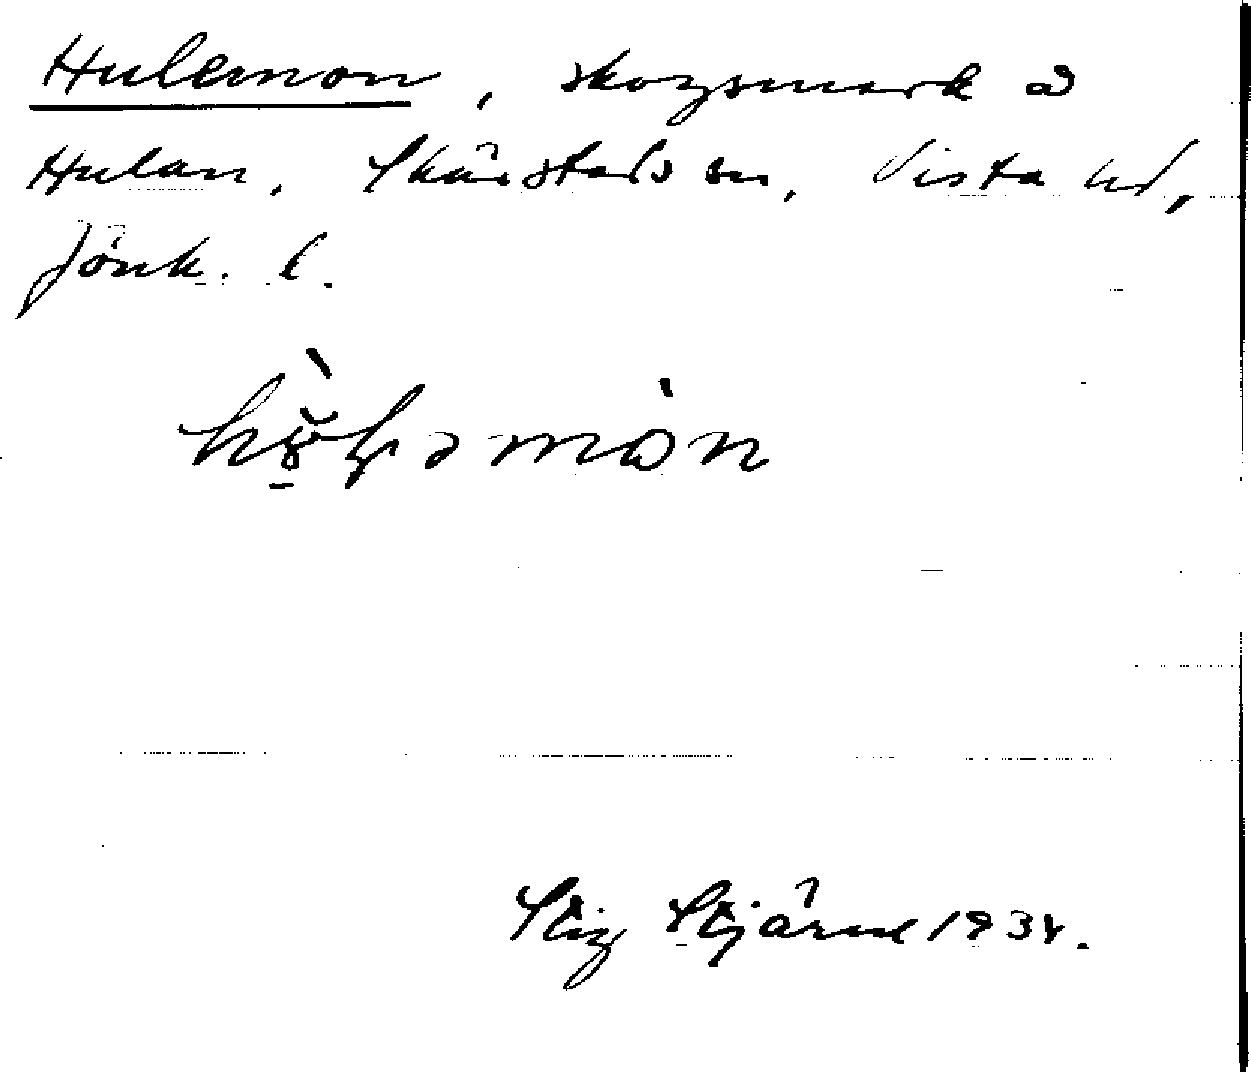 Hulemon, skogsmark å
Hulan, Skärstads sn, Vista hd,
Jönk. l.
Stig Stjärne 1934.